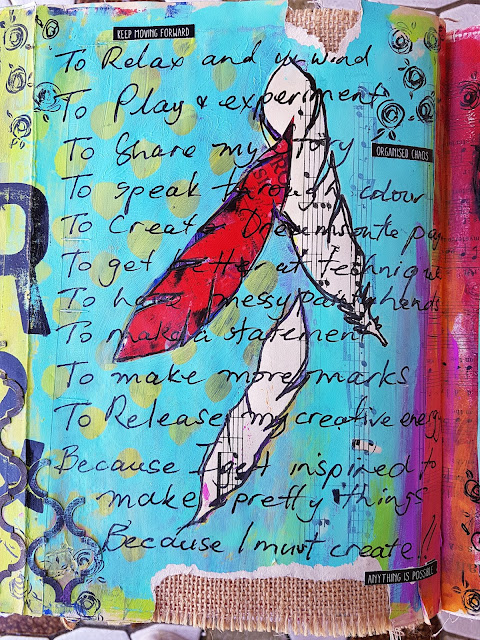 KEEP MOVING FORWARD
To Relax and unwind
To Play & experiment
To Share my story
ORGANISED CHAOS
To speak through colour
To Create Dreams on the page
To get better at technique
To have messy painty hands
To make a statement
To make more marks
To Release my creative energy
Because I get inspired to
make pretty things
Because I must create!!
ANYTHING IS POSSIBLE